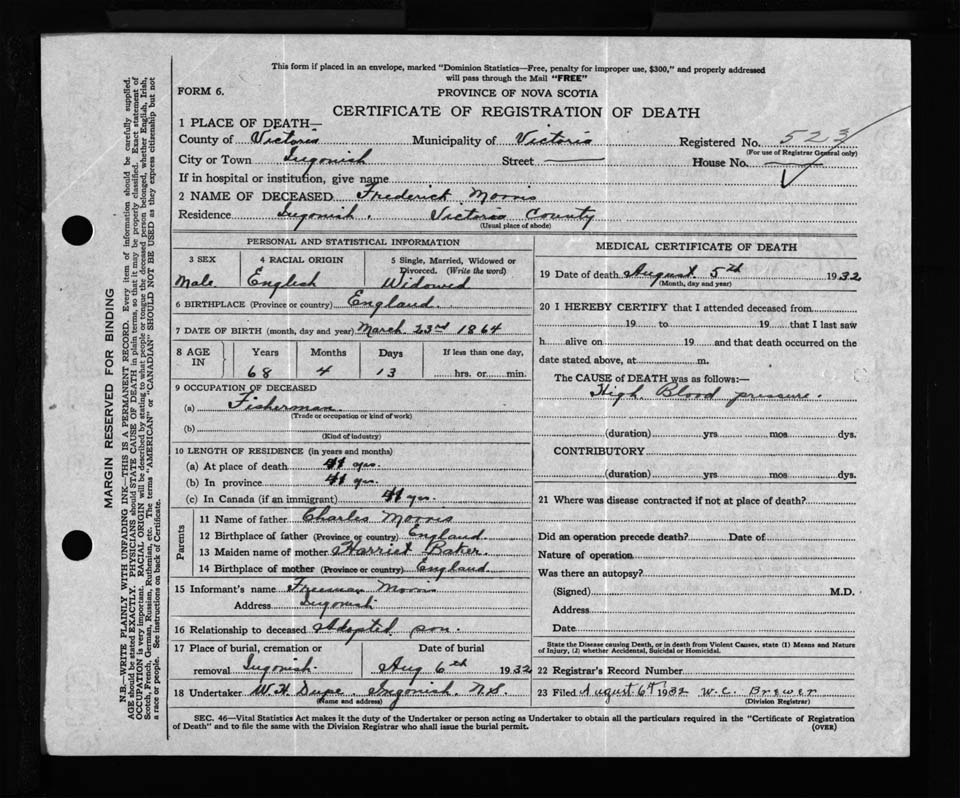 This form if placed in an envelope, marked "Dominion Statistics—Free, penalty for improper use, $300," and properly addressed
will pass through the Mail "FREE"
FORM 6.
PROVINCE OF NOVA SCOTIA
CERTIFICATE OF REGISTRATION OF DEATH
1 PLACE OF DEATH—
County of Victoria Municipality of Victoria Registered No. 5213
(For use of Registrar General only)
City or Town Ingonish Street House No.
If in hospital or institution, give name
2 NAME OF DECEASED Frederick Morris
Residence Ingonish. Victoria County
(Usual place of abode)
PERSONAL AND STATISTICAL INFORMATION
3 SEX 4 RACIAL ORIGIN 5 Single, Married, Widowed or
Divorced. (Write the word)
Male English Widowed
6 BIRTHPLACE (Province or country) England
7 DATE OF BIRTH (month, day and year) March 23rd 1864
8 AGE IN Years Months Days If less than one day,
68 4 13 hrs. or min.
9 OCCUPATION OF DECEASED
(a) Fisherman
(Trade or occupation or kind of work)
(b)
(Kind of industry)
10 LENGTH OF RESIDENCE (in years and months)
(a) At place of death 41 yrs.
(b) In province 41 yrs.
(c) In Canada (if an immigrant) 41 yrs.
Parents
11 Name of father Charles Morris
12 Birthplace of father (Province or country) England
13 Maiden name of mother Harriet Baker.
14 Birthplace of mother (Province or country) England
15 Informant's name Freeman Morris
Address Ingonish
16 Relationship to deceased Adopted son.
17 Place of burial, cremation or Date of burial
removal Ingonish. Aug 6th 1932
18 Undertaker W.H. Dupe. Ingonish. N.S.
(Name and address)
MEDICAL CERTIFICATE OF DEATH
19 Date of death August 5th 1932
(Month, day and year)
20 I HEREBY CERTIFY that I attended deceased from
19 to 19 that I last saw
h alive on 19 and that death occurred on the
date stated above, at m.
The CAUSE of DEATH was as follows:—
High Blood pressure.
(duration) yrs mos dys.
CONTRIBUTORY
(duration) yrs mos dys.
21 Where was disease contracted if not at place of death?
Did an operation precede death? Date of
Nature of operation
Was there an autopsy?
(Signed) M.D.
Address
Date
State the Disease causing Death, or in death from Violent Causes, state (1) Means and Nature
of Injury, (2) whether Accidental, Suicidal or Homicidal.
22 Registrar's Record Number
23 Filed August 6th 1932 W. C. Brewer
(Division Registrar)
SEC. 46—Vital Statistics Act makes it the duty of the Undertaker or person acting as Undertaker to obtain all the particulars required in the "Certificate of Registration
of Death" and to file the same with the Division Registrar who shall issue the burial permit.
(OVER)
MARGIN RESERVED FOR BINDING
N.B.—WRITE PLAINLY WITH UNFADING INK—THIS IS A PERMANENT RECORD. Every item of information should be carefully supplied.
AGE should be stated EXACTLY. PHYSICIANS should STATE CAUSE OF DEATH in plain terms, so that it may be properly classified. Exact statement of
OCCUPATION is very important. RACIAL ORIGIN will be described by stating to what people or race the deceased person belonged, whether English, Irish,
Scotch, French, German, Russian, Ruthenian, etc. The terms "AMERICAN" or "CANADIAN" SHOULD NOT BE USED as they express citizenship but not
a race or people. See instructions on back of Certificate.